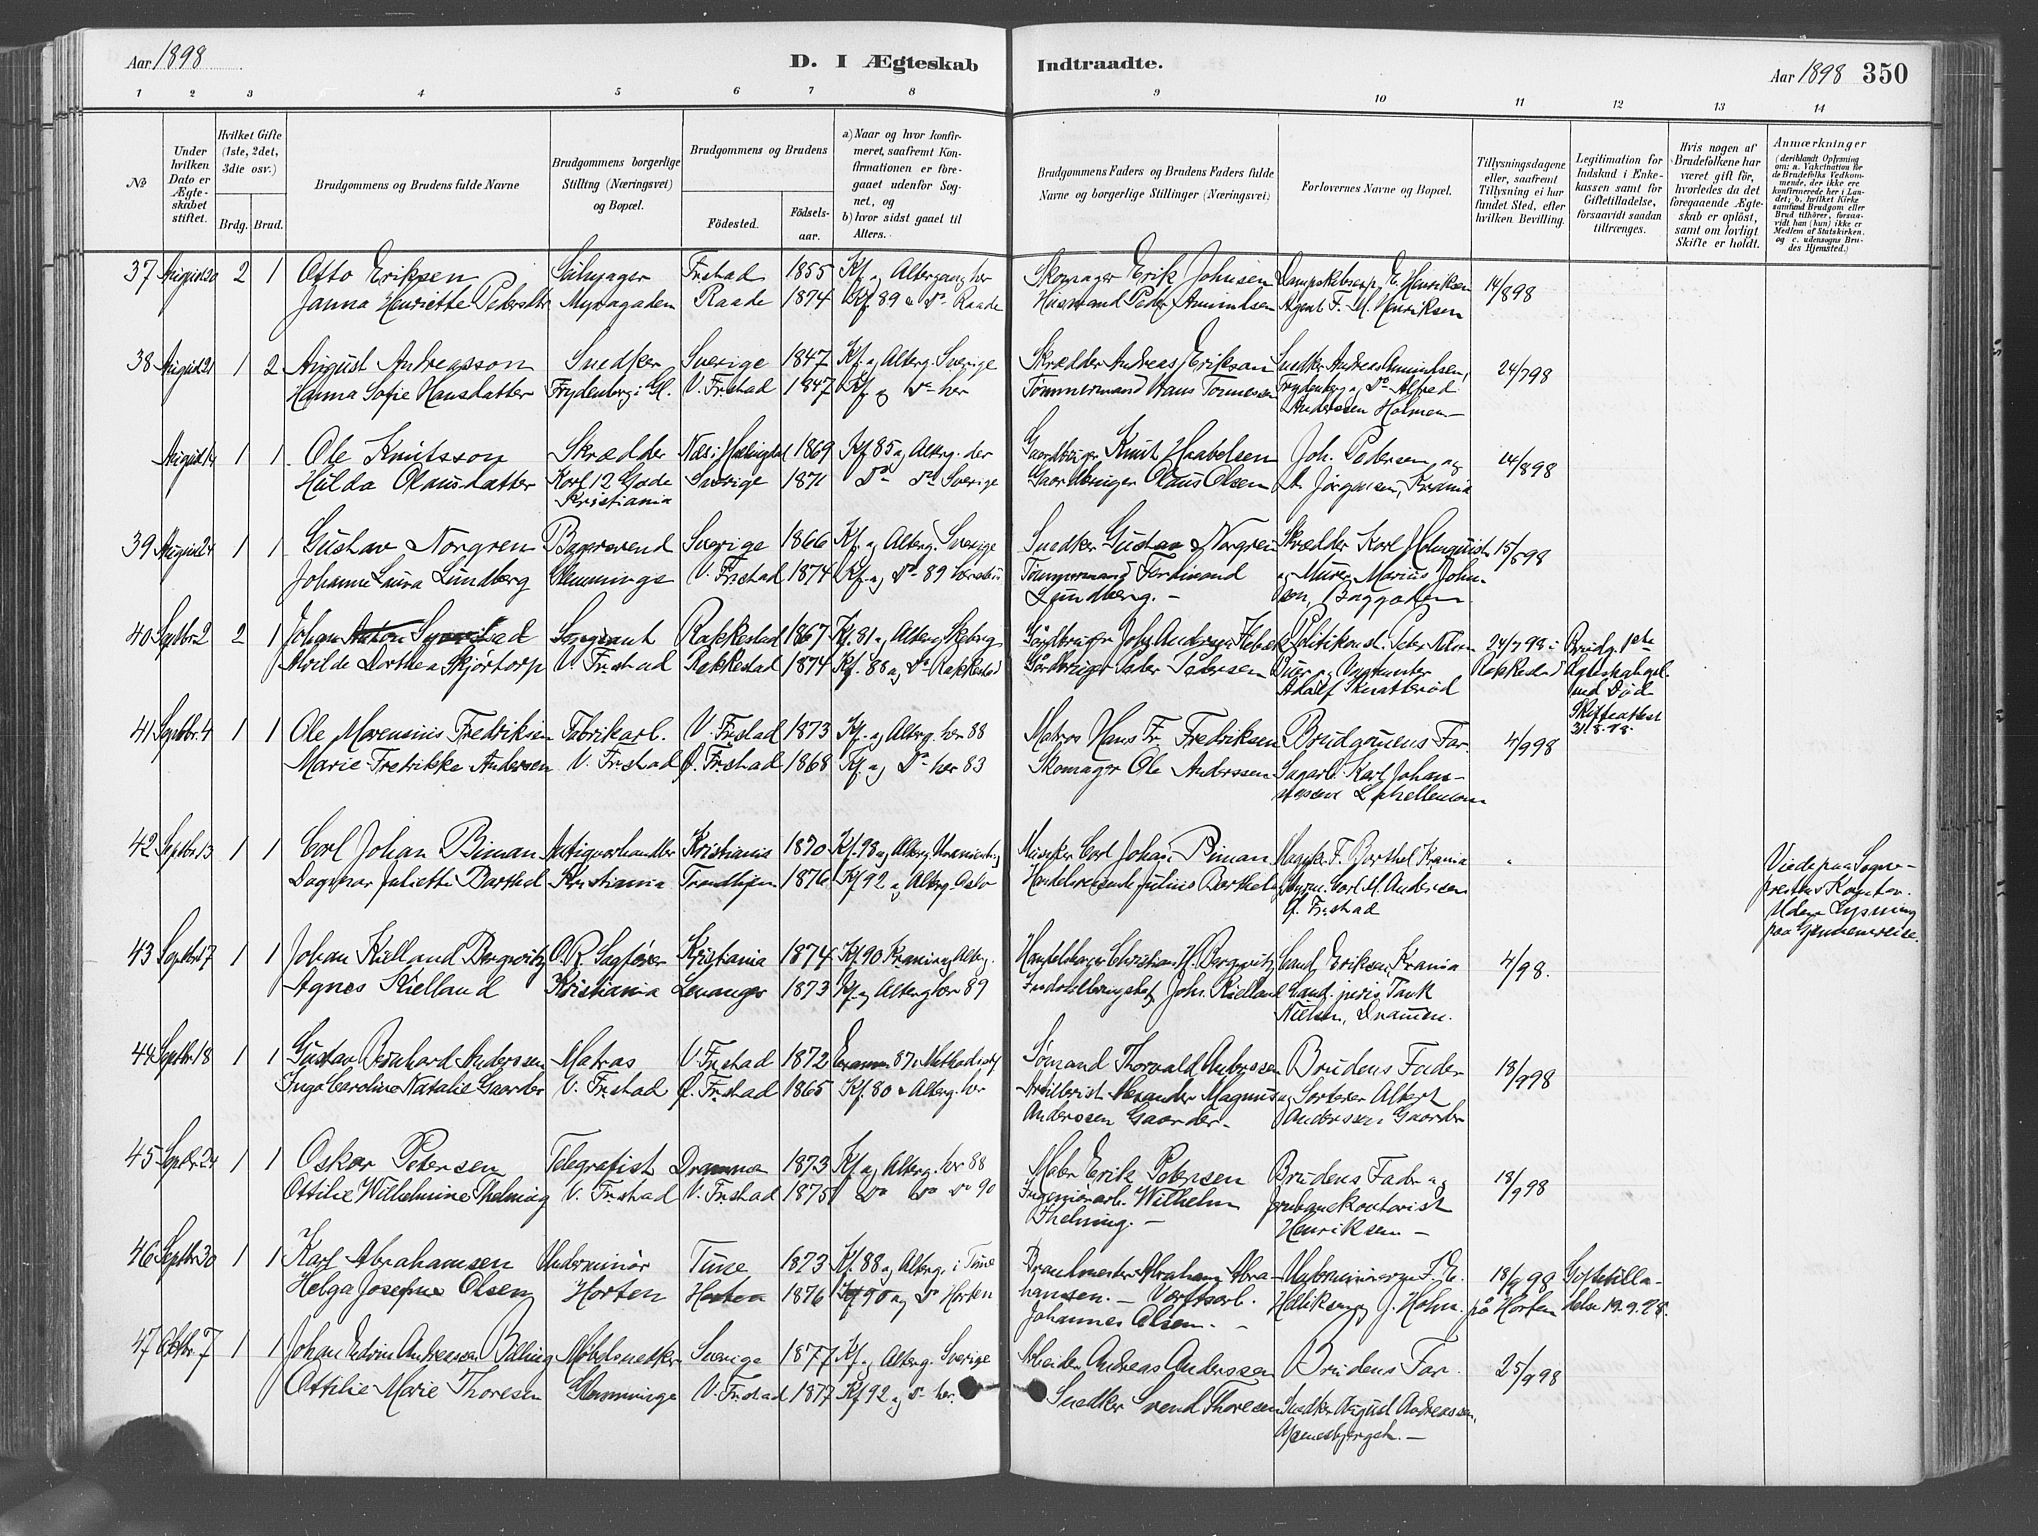 Aar 1898
D. I Ægteskab Indtraadte.
Aar 1898 350
1 2 3 4 5 6 7 8 9 10 11 12 13 14
No
Under hvilken Dato er Ægteskabet stiftet.
Hvilket Gifte (1ste, 2det, 3die osv.)
Brdg. Brud.
Brudgommens og Brudens fulde Navne
Brudgommens borgerlige Stilling (Næringsvei) og Bopæl.
Brudgommens og Brudens
Fødested. Fødselsaar.
a) Naar og hvor konfirmeret, saafremt Konfirmationen er foregaaet udenfor Sognet, og
b) hvor sidst gaaet til Alters.
Brudgommens Faders og Brudens Faders fulde Navne og borgerlige Stillinger (Næringsvei)
Forlovernes Navne og Bopæl.
Tillysningsdagene eller, saafremt Tillysning ei har fundet Sted, efter hvilken Bevilling.
Legitimation for Indskud i Enkekassen samt for Giftetilladelse, forsaavidt saadan tiltrænges.
Hvis nogen af Brudefolkene har været gift før, hvorledes da det foregaaende Ægteskab er opløst, samt om lovligt Skifte er holdt.
Anmærkninger (deriblandt Oplysning om: a. Vakcination for de Brudefolks Vedkommende, der ikke ere konfirmerede her i Landet; b. hvilket Kirkesamfund Brudgom eller Brud tilhører, forsaavidt han (hun) ikke er Medlem af Statskirken. og c. udensogns Brudes Hjemsted.)
37 August 20 2 1 Otto Eriksen Fr.stad 1855 Kf. og Altergang her Skomager Erik Johnsen E. Henriksen 14/8 98
Janna Henriette Pedersdtr Myragaden Raade 1874 Kf 89 Do Raade Husmand Peder Amundsen Agent F. M. Henriksen
38 August 21 1 2 August Andreasson Snedker Sverige 1847 Kf. og Alterg. Sverige Skrædder Andreas Erikson Snedker Andreas Amundsen, 24/7 98
Hanna Sofie Hansdatter Frydenberg i Gl. V. Fr.stad 1847 Kf. og Do her Tømmermand Hans Tønnesen Frydenberg og Do Alfred
Anderssen Holmen
August 14 1 1 Ole Knutsson Skrædder Næs i Hallingdal 1869 Kf 85 og Alterg. der Gaardbruger Knut Joh. Pedersen og 14/8 98
Hilda Olausdatter Karl 12 Gade Sverige 1871 Do Do Sverige Gaardbruger Olaus Olsen A. Jørgensen, Krania
Kristiania
39 August 24 1 1 Gustav Norgren Bagersvend Sverige 1866 Kf. og Alterg. Sverige Snedker Gustav Norgren Skrædder Karl Holmquist 15/8 98
Johanne Laura Lundberg Glemminge V. Fr.stad 1874 Kf. og Do 89 Tømmermand Ferdinand og Murer Marius John-
Lundberg. sen,
40 Septbr 2 2 1 Johan Anton Sergeant Rakkestad 1867 Kf. 81 og Alterg. Gårdbruger Joh. Andreas Politikonst. Peter 24/7 98 i Brudg. 1ste
Alvilde Dorthea Skjørtorp V. Fr.stad Rakkestad 1874 Kf. 88 og Do Rakkestad Gårdbruger Peder Pedersen Rakkestad Ægteskab opl.
Adolf ved Død
Skifteattest
31.8.98.
41 Septbr. 4 1 1 Ole Marensius Fredriksen Fabrikarb. V. Fr.stad 1873 Kf. og Alterg. her 88 Matros Hans Fr. Fredriksen Brudgomens Far. 4/9 98
Marie Fredrikke Andersen V. Fr.stad Ø. Fr.stad 1868 Kf. og Do her 83 Skomager Ole Anderssen Sagarb. Karl Johan-
42 Septbr 13 1 1 Carl Johan Biman Antiqvarhandler Kristiania 1870 Carl Johan Biman F. Barthel Krania Viede paa Sogne-
Dagmar Juliette Barthel Kristiania Trondhjem 1876 Kf 92 og Alterg. Oslo Handelsreisende Julius Barthel Carl M. Andersen prestens Kontor.
Ø. Fr.stad Uden Lysning
paa Gjennemreise.
43 Septbr 17 1 1 Johan Kielland Bergwitz O.R. Sagfører Kristiania 1874 Kf. 90 Krania og Alterg. Christian H. Bergwitz Cand. Eriksen, Krania 4/9 98.
Agnes Kielland Kristiania Levanger 1873 Kf. og Alterg her 89 Joh. Kielland Cand. juris Tank
Nielsen, Dramen.
44 Septbr 18 1 1 Gustav Bernhard Anderssen Matros V. Fr.stad 1872 Sømand Thorvald Anderssen Brudens Fader 18/9 98
Inga Caroline Natalie Gaarder V. Fr.stad Ø. Fr.stad 1865 Kf. 80 Alterg. her Artillerist Alexander Magnus og Sorterer Albert
Anderssen Gaarder. Anderssen Gaarder
45 Septbr. 24 1 1 Oskar Petersen Telegrafist Drammen 1873 Kf. og Alterg. her 88 Maler Erik Petersen Brudens Fader og 18/9 98
Ottilie Wilhelmine Thelning V. Fr.stad V. Fr.stad 1875 Do Do Do 90 Wilhelm
Thelning. Henriksen
46 Septbr 30 1 1 Karl Abrahamsen Underminør Tune 1873 Kf. 88 og Alterg. i Tune Abraham Abra- 18/9 98 Giftetilla-
Helga Josefine Olsen Horten Horten 1876 Kf 90 og Do Horten hamsen. Verftsarb. J. Holm. på Horten delse 19.9.98.
Johannes Olsen.
47 Oktbr. 7 1 1 Johan Edvin Andreassen Billing Møbelsnedker Sverige 1877 Kf. og Alterg. Sverige Arbeider Andreas Anderssen Brudens Far. 25/9 98
Ottilie Marie Thoresen Glemminge V. Fr.stad 1877 Kf 92 og Do her. Snedker Svend Thoresen Snedker August Andreassen,